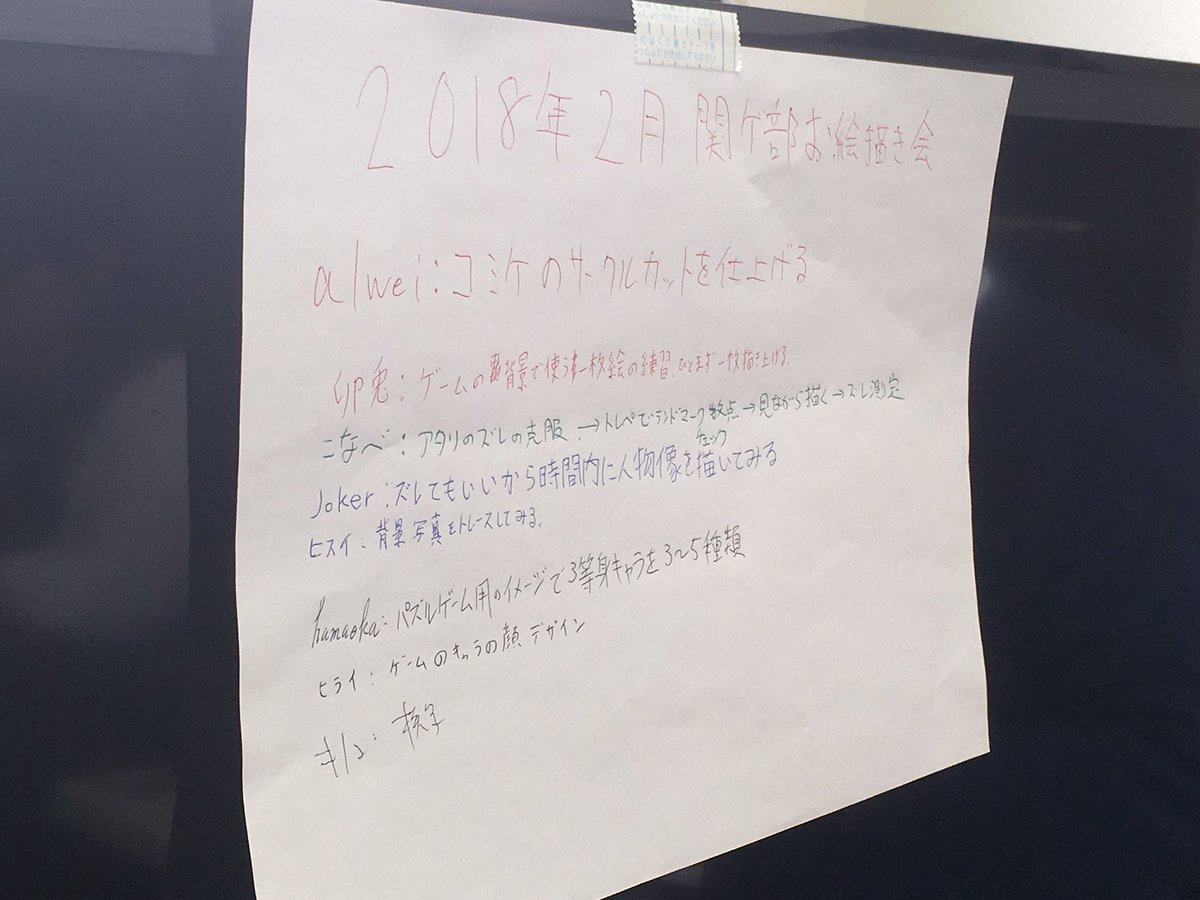 2018年2月 関ゲ部お絵描き会
alwei:コミケのサークルカットを仕上げる
卯兎:ゲームの背景で使う一枚絵の練習、ひとまず一枚描き上げる。
こなべ:アタリのズレの克服、→トレペでランドマーク数点→見ながら描く→ズレ測定
チェック
Joker:ズレてもいいから時間内に人物像を描いてみる
ヒスイ:背景写真をトレースしてみる。
hamaoka:パズルゲーム用のイメージで3等身キャラを3〜5種類
ヒライ:ゲームのキャラの顔デザイン